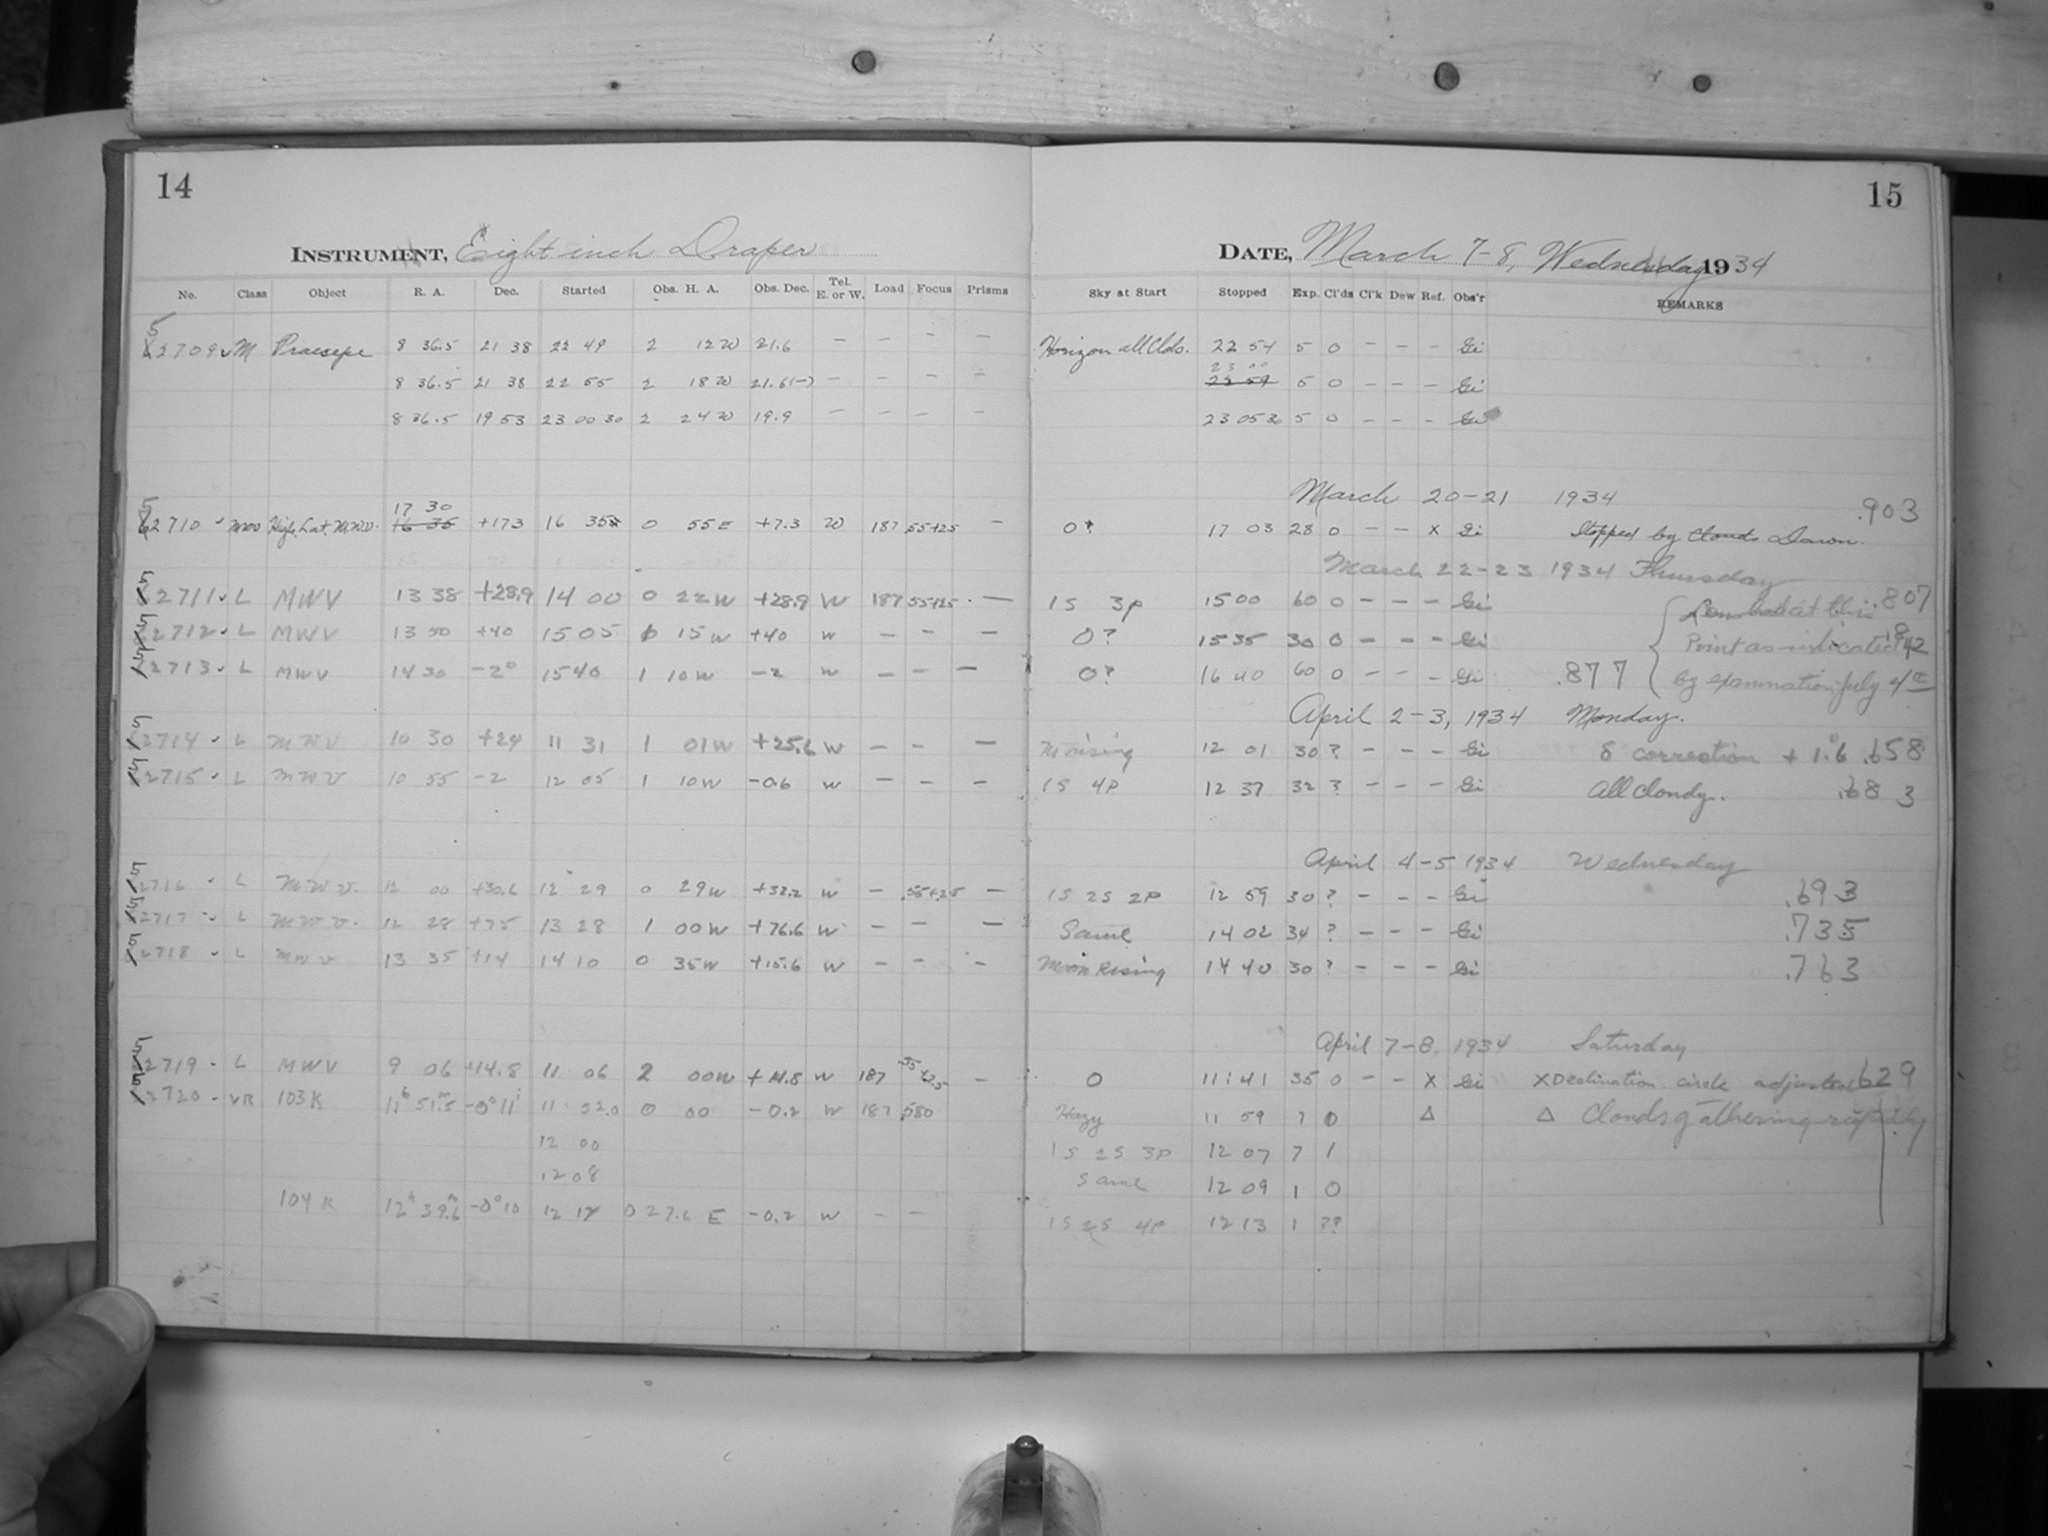 14
15
INSTRUMENT, Eight inch Draper
DATE, March 7-8, Wednesday 1934
No. Class Object R. A. Dec. Started Obs. H. A. Obs. Dec. Tel. E. or W. Load Focus Prisms Sky at Start Stopped Exp. Cl'ds Cl'k Dew Ref. Obs'r REMARKS
52709 M Praesepe 8 36.5 21 38 22 49 2 12 W 21.6 — — — — Horizon all Clds. 22 54 5 0 - - - Gi
8 36.5 21 38 22 55 2 18 W 21.6(-) — — — — 23 00 22 59 5 0 - - - Gi
8 36.5 19 53 23 00 30 2 24 W 19.9 — — — — 23 05 30 5 0 - - - Gi
March 20-21 1934 .903
17 30
52710 MWV High Lat. M.W.V. 16 35 +17.3 16 35 0 55 E +7.3 W 187 55+25 — 0? 17 03 28 0 - - X Gi Stopped by Clouds Dawn.
March 22-23 1934 Thursday
52711 L MWV 13 38 +28.9 14 00 0 22 W +28.9 W 187 55+25 — 1S 3P 15 00 60 0 - - - Gi Lens bad at this .807
52712 L MWV 13 50 +40 15 05 15 W +40 W — — — 0? 15 35 30 0 - - - Gi Point as indicated .842
52713 L MWV 14 30 -2° 15 40 1 10 W -2 W — — — 0? 16 40 60 0 - - - Gi .877 by examination July 4th
April 2-3, 1934 Monday.
52714 L MWV 10 30 +24 11 31 1 01 W +25.6 W — — — M rising 12 01 30 ? - - - Gi δ correction + 1°.6 .658
52715 L MWV 10 55 -2 12 05 1 10 W -0.6 W — — — 1S 4P 12 37 32 ? - - - Gi All Cloudy. .683
April 4-5 1934 Wednesday
52716 L M.W.V. 12 00 +30.6 12 29 0 29 W +32.2 W — 55+25 — 1S 2S 2P 12 59 30 ? - - - Gi .693
52717 L M.W.V. 12 28 +75 13 28 1 00 W +76.6 W — — — Same 14 02 34 ? - - - Gi .735
52718 L MWV 13 35 +14 14 10 0 35 W +15.6 W — — — Moon Rising 14 40 30 ? - - - Gi .763
April 7-8, 1934 Saturday
52719 L MWV 9 06 +14.8 11 06 2 00 W +14.8 W 187 55+25 — 0 11:41 35 0 - - X Gi X Declination circle adjusted .629
52720 VR 103 K 11h 51.5m -0° 11' 11 52.0 0 00 -0.2 W 187 580 Hazy 11 59 7 0 Δ Δ Clouds gathering rapidly
12 00 1S 2S 3P 12 07 7 1
12 08 Same 12 09 1 0
104 K 12h 39.6m -0° 10 12 12 0 27.6 E -0.2 W — — 1S 2S 4P 12 13 1 ??